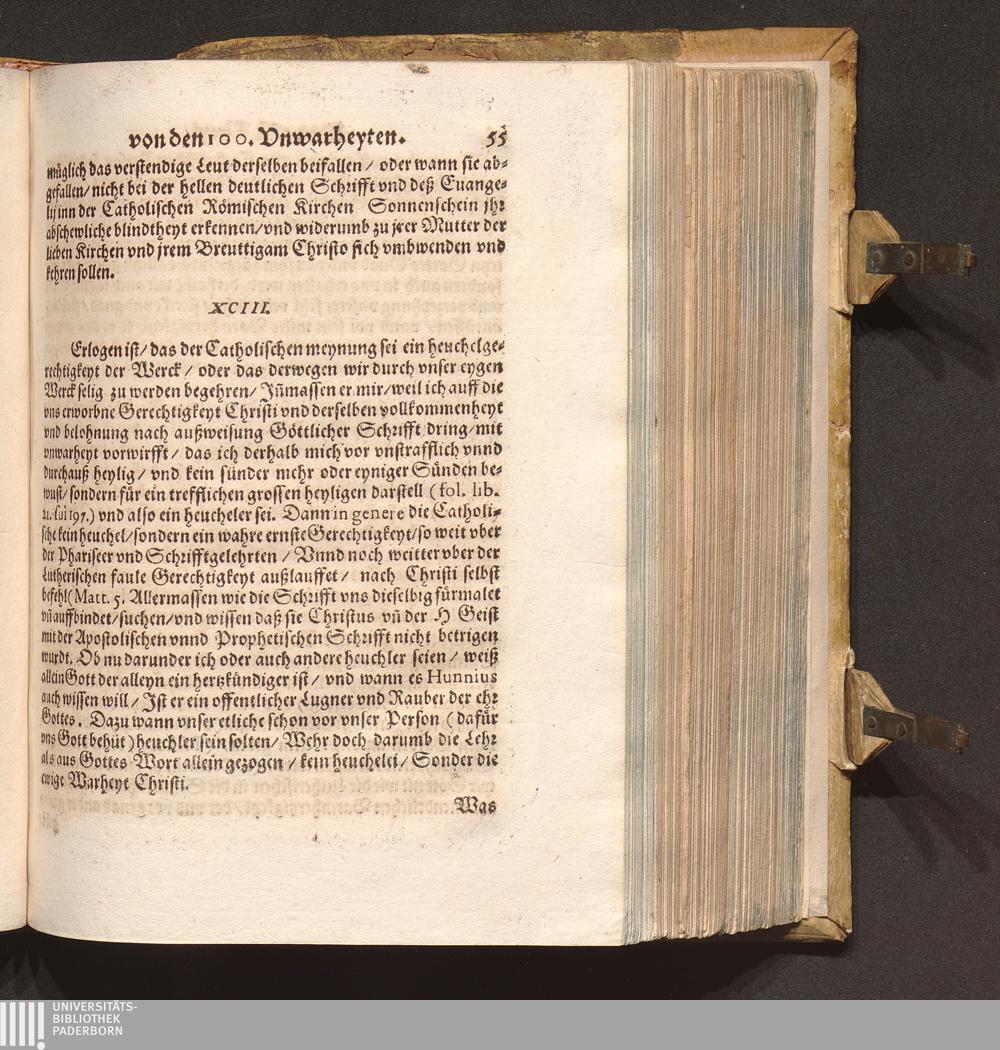 von den 100. Vnwarheyten. 55
müglich das verstendige Leut derselben beifallen / oder wann sie ab-
gefallen / nicht bei der hellen deutlichen Schrifft vnd deß Euange-
lij inn der Catholischen Römischen Kirchen Sonnenschein jhr
abschewliche blindtheyt erkennen / vnd widerumb zu jrer Mutter der
lieben Kirchen vnd jrem Breuttigam Christo sich vmbwenden vnd
kehren sollen.
XCIII.
Erlogen ist / das der Catholischen meynung sei ein heuchelge-
rechtigkeyt der Werck / oder das derwegen wir durch vnser eygen
Werck selig zu werden begehren / Jn̄massen er mir / weil ich auff die
vns erworbne Gerechtigkeyt Christi vnd derselben vollkommenheyt
vnd belohnung nach außweisung Göttlicher Schrifft dring / mit
vnwarheyt vorwirfft / das ich derhalb mich vor vnstrafflich vnnd
durchauß heylig / vnd kein sünder mehr oder eyniger Sünden be-
wust / sondern für ein trefflichen grossen heyligen darstell (fol. lib.
197.) vnd also ein heucheler sei. Dann in genere die Catholi-
sche kein heuchel / sondern ein wahre ernste Gerechtigkeyt / so weit vber
der Phariseer vnd Schrifftgelehrten / Vnnd noch weitter vber der
Lutherischen faule Gerechtigkeyt außlauffet / nach Christi selbst
befehl (Matt. 5. Allermassen wie die Schrifft vns dieselbig fürmalet
vn̄ auffbindet / suchen / vnd wissen daß sie Christus vn̄ der H Geist
mit der Apostolischen vnnd Prophetischen Schrifft nicht betrigen
wurdt. Ob nu darunder ich oder auch andere heuchler seien / weiß
allein Gott der alleyn ein hertzkündiger ist / vnd wann es Hunnius
auch wissen will / Jst er ein offentlicher Lugner vnd Rauber der ehr
Gottes. Dazu wann vnser etliche schon vor vnser Person (dafür
vns Gott behüt) heuchler sein solten / Wehr doch darumb die Lehr
als aus Gottes Wort allein gezogen / kein heuchelei / Sonder die
ewige Warheyt Christi.
Was
UNIVERSITÄTS-
BIBLIOTHEK
PADERBORN